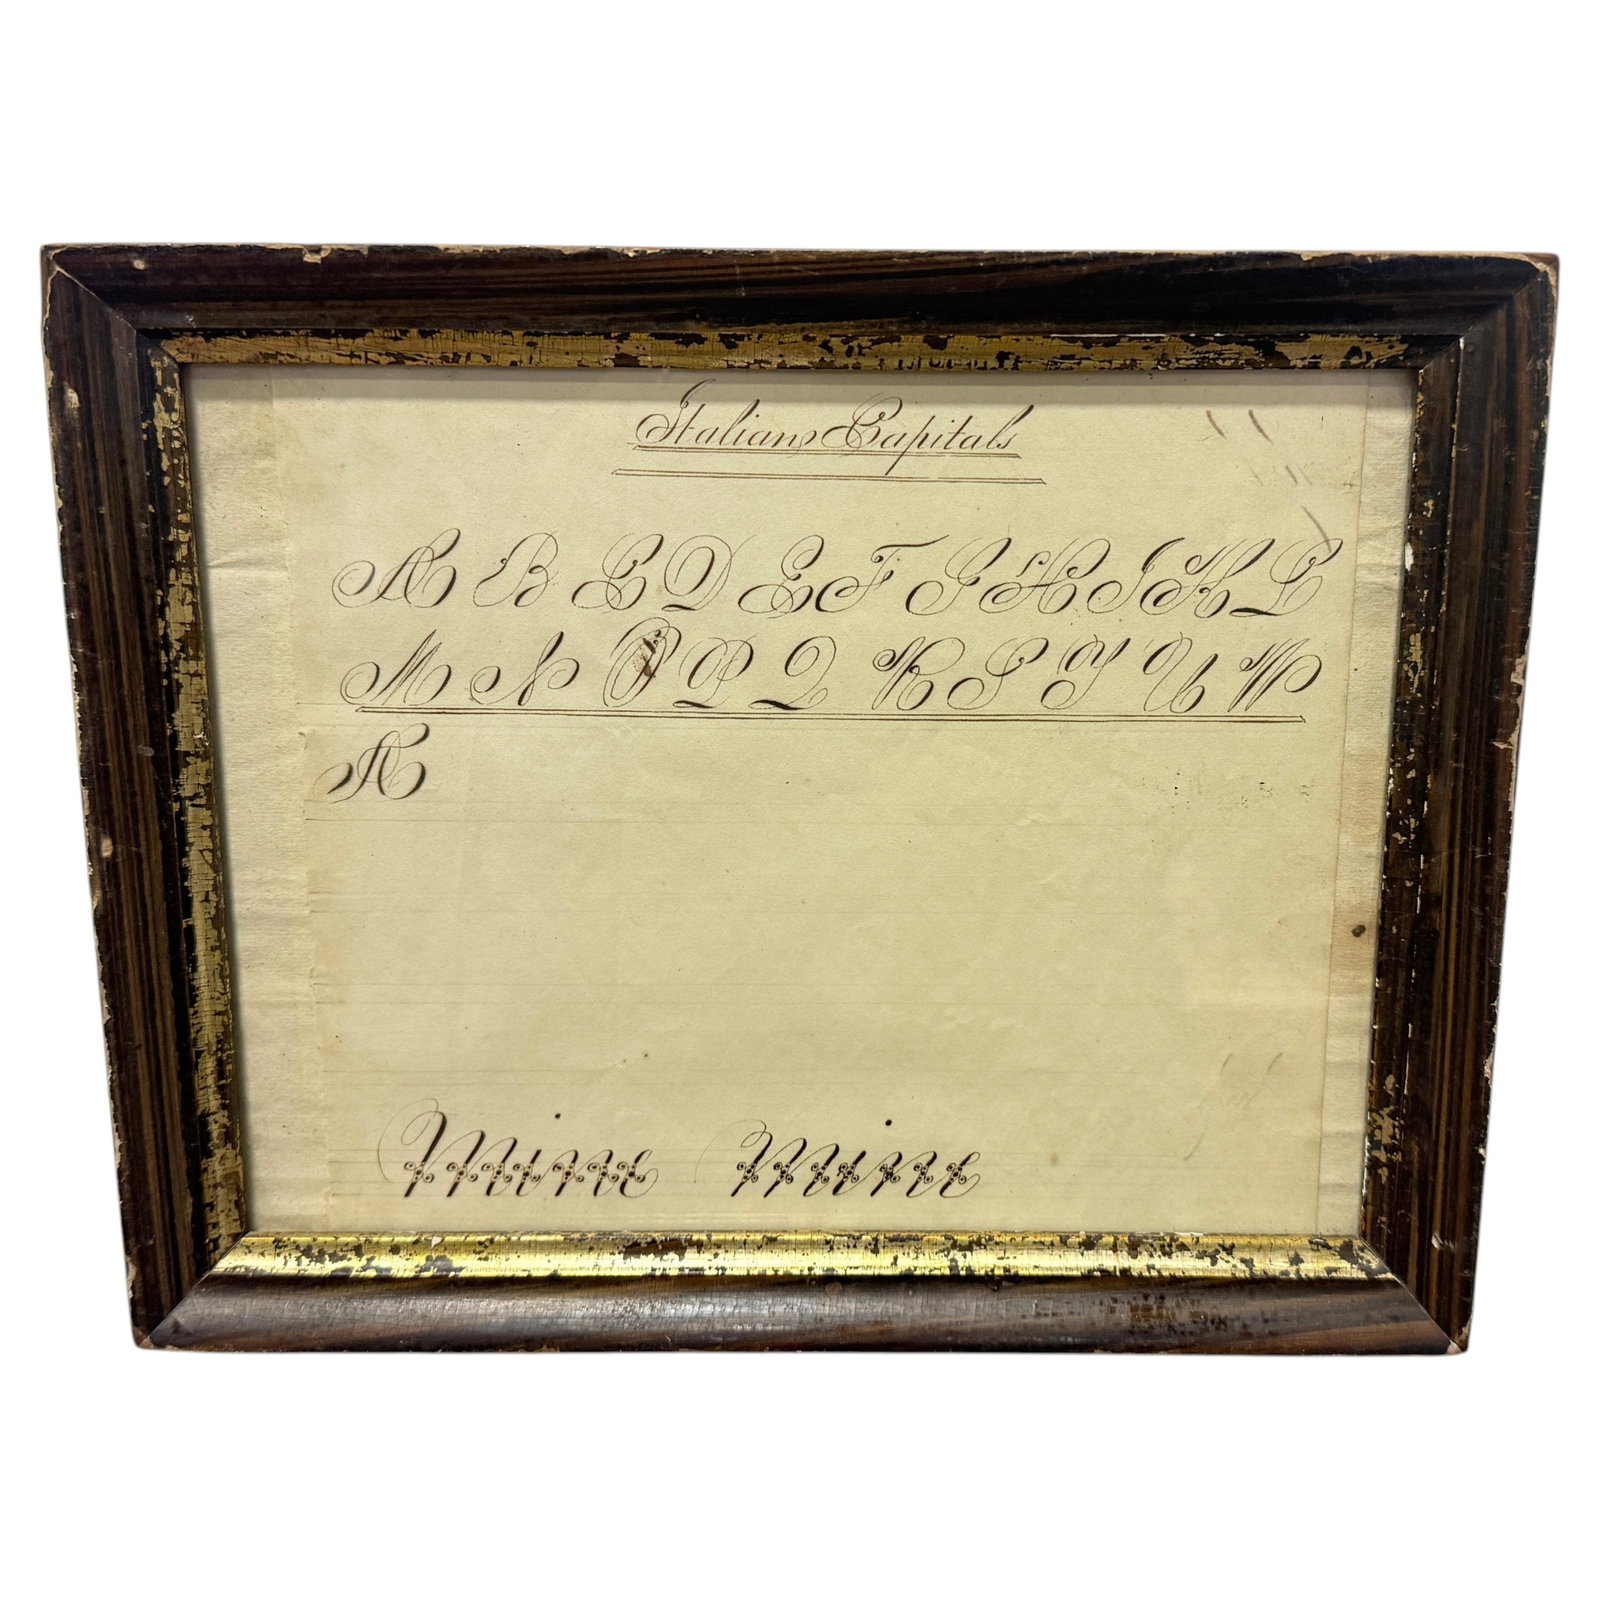 Italian Capitals
A B C D E F G H I K L
M N O P Q R S T U W
A
Mine Mine